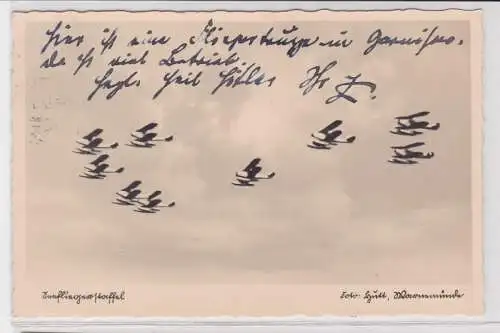 Hier ist eine Fliegertruppe in Garnison.
da ist viel Betrieb.
Herzl. Heil Hitler Ihr
Seefliegerstaffel
Foto: Hutt, Warnemünde